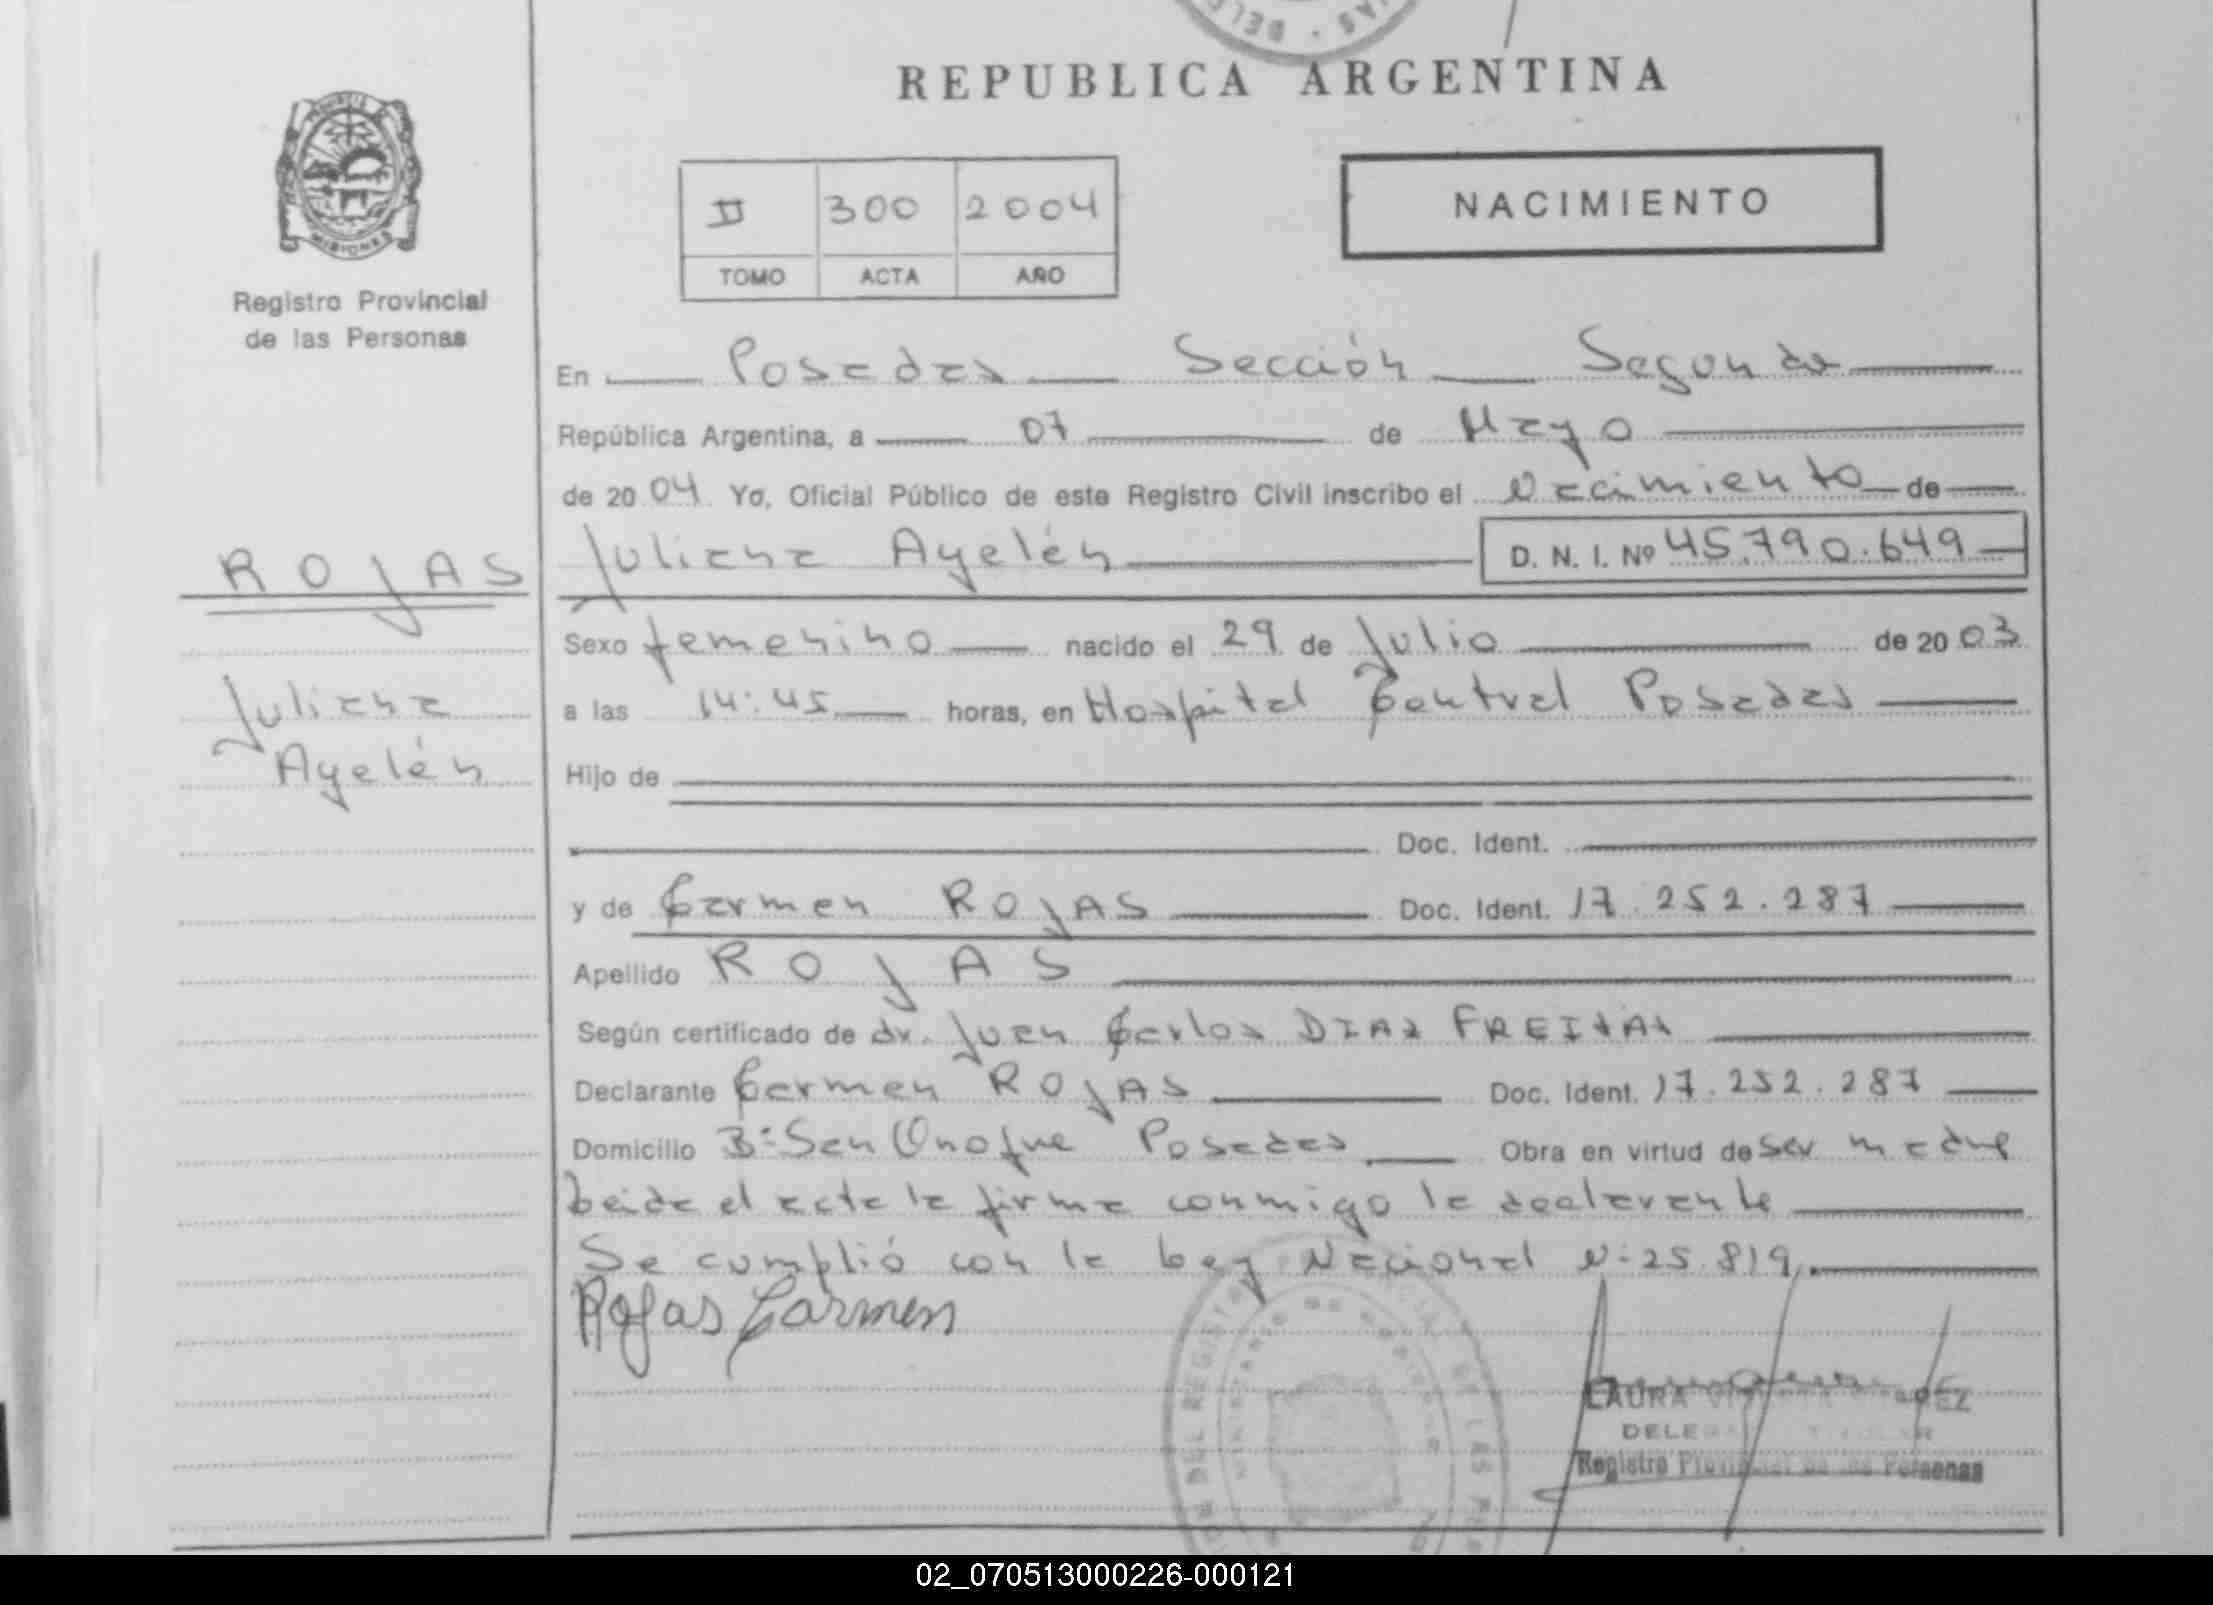 REPUBLICA ARGENTINA
MISIONES
Registro Provincial
de las Personas
II 300 2004
TOMO ACTA AÑO
NACIMIENTO
En Posadas Sección Segunda
República Argentina, a 07 de Mayo
de 2004. Yo, Oficial Público de este Registro Civil inscribo el Nacimiento de
ROJAS
Juliana Ayelén
D. N. I. Nº 45.790.649
Sexo femenino nacido el 29 de Julio de 2003
Juliana
Ayelén
a las 14:45 horas, en Hospital Central Posadas
Hijo de
Doc. Ident.
y de Carmen ROJAS Doc. Ident. 17.252.287
Apellido ROJAS
Según certificado de dr. Juan Carlos DIAZ FREITAS
Declarante Carmen ROJAS Doc. Ident. 17.252.287
Domicilio Bº San Onofre Posadas Obra en virtud de ser madre
Leida el acta la firma conmigo la declarante
Se cumplió con la Ley Nacional Nº 25.819.
Rojas Carmen
LAURA
Registro Provincial de las Personas
02_070513000226-000121